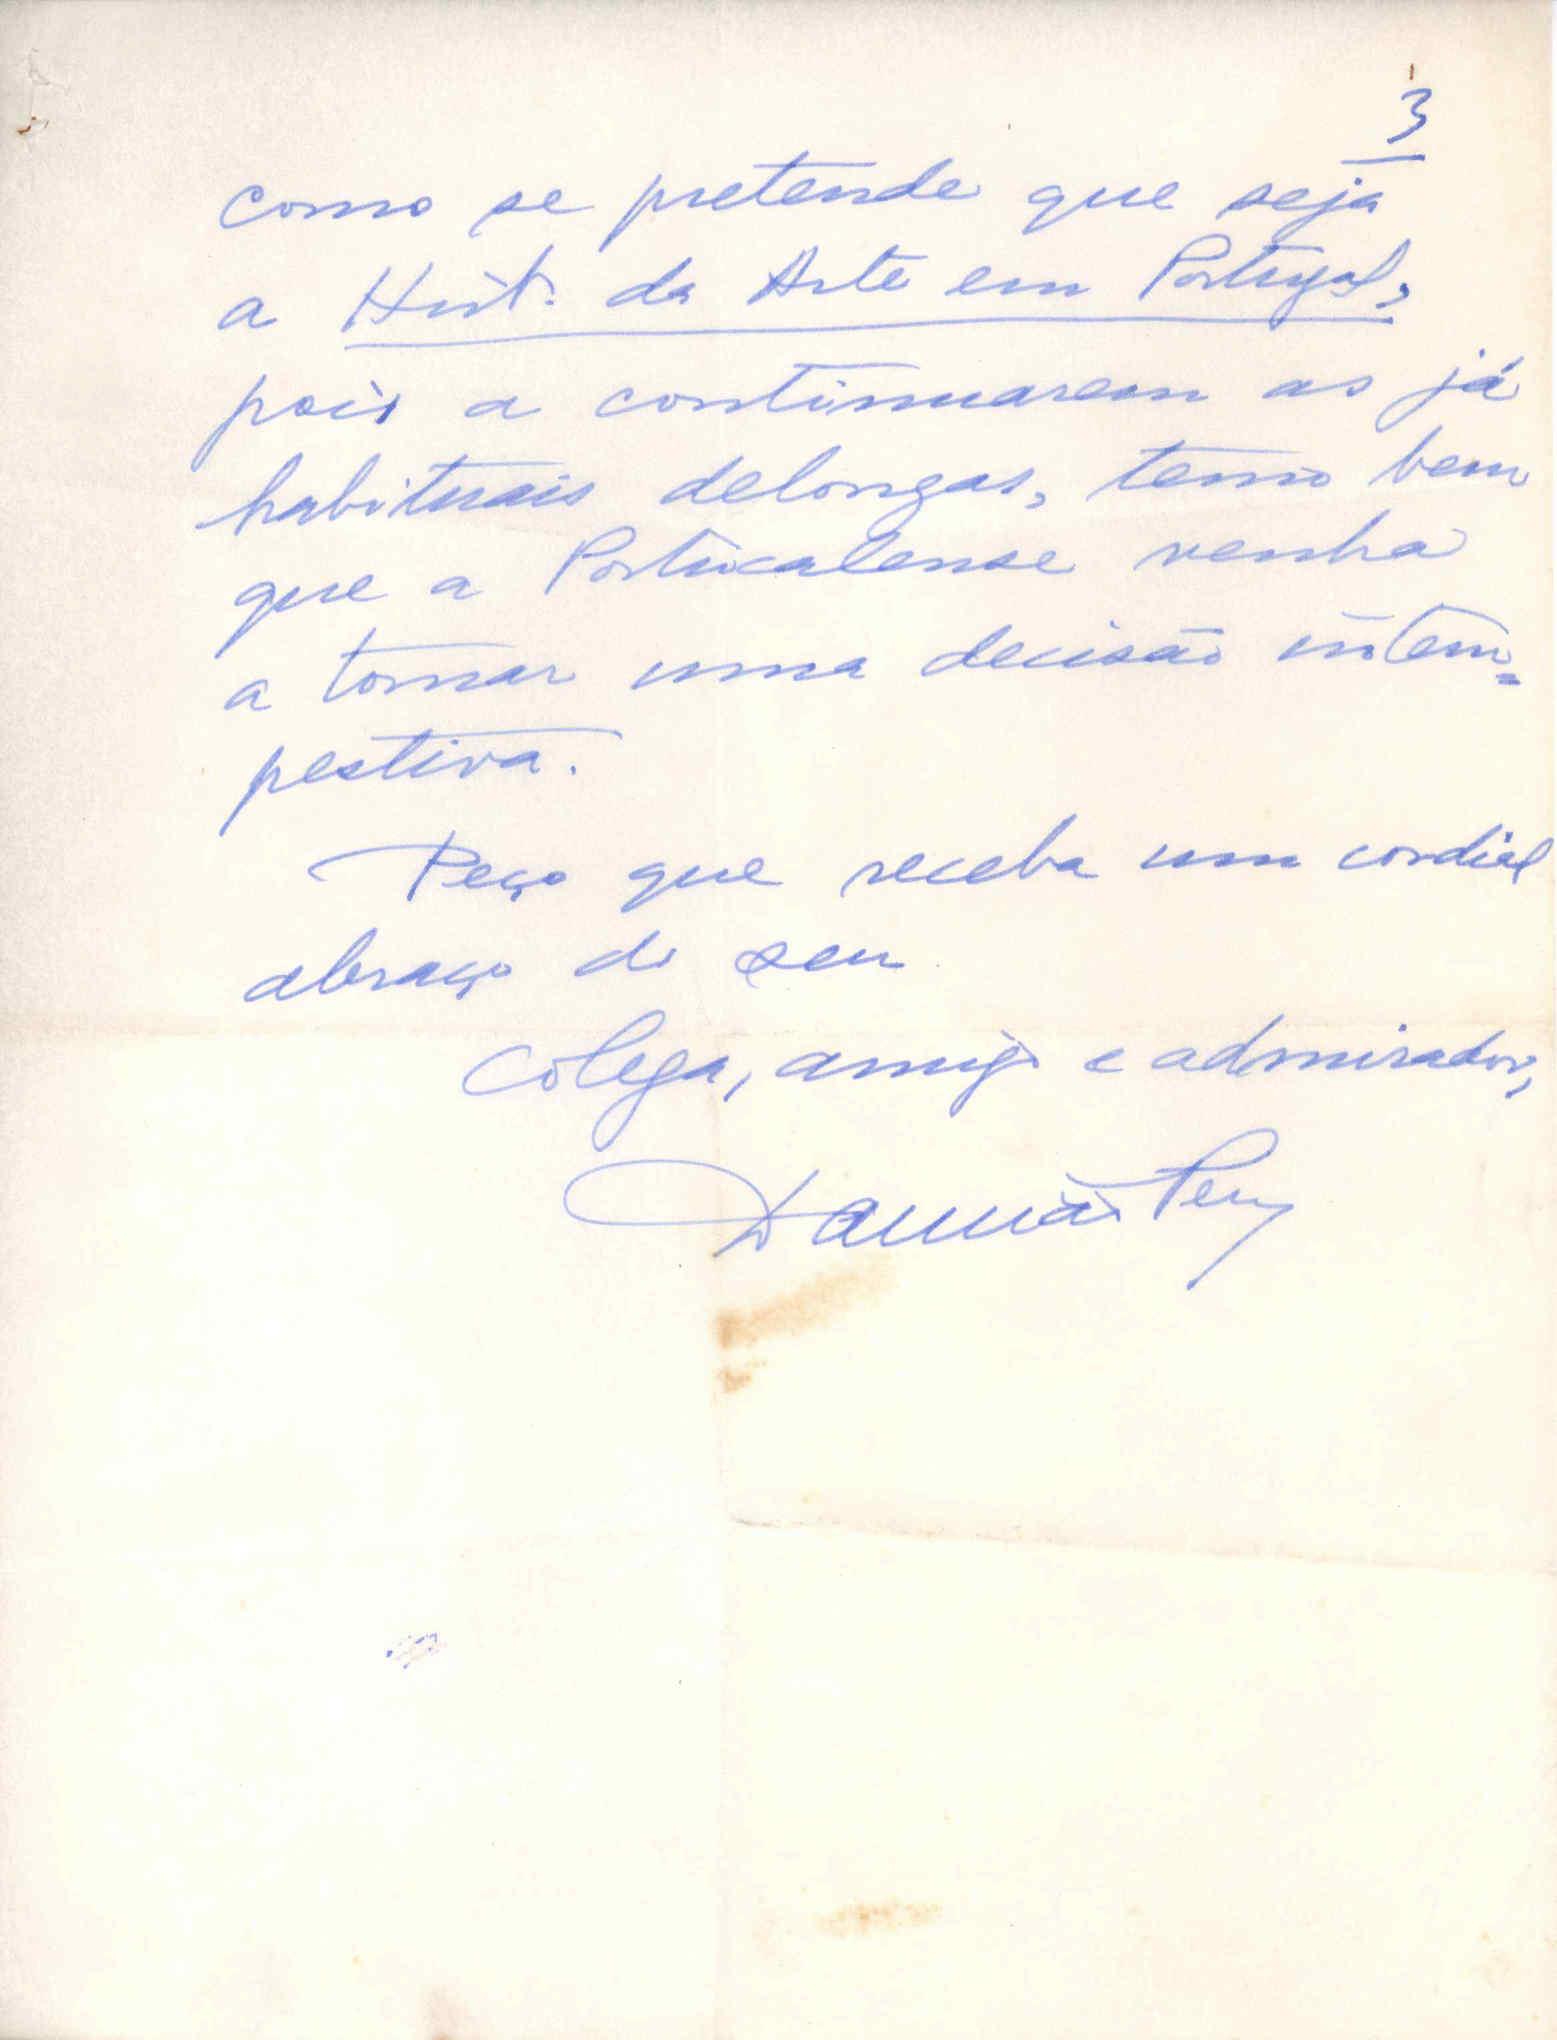 3
como se pretende que seja
a Hist. da Arte em Portugal,
pois a continuarem as já
habituais delongas, temo bem
que a Portucalense venha
a tomar uma decisão intem-
pestiva.
Peço que receba um cordial
abraço do seu
colega, amigo e admirador,
Damião Peres